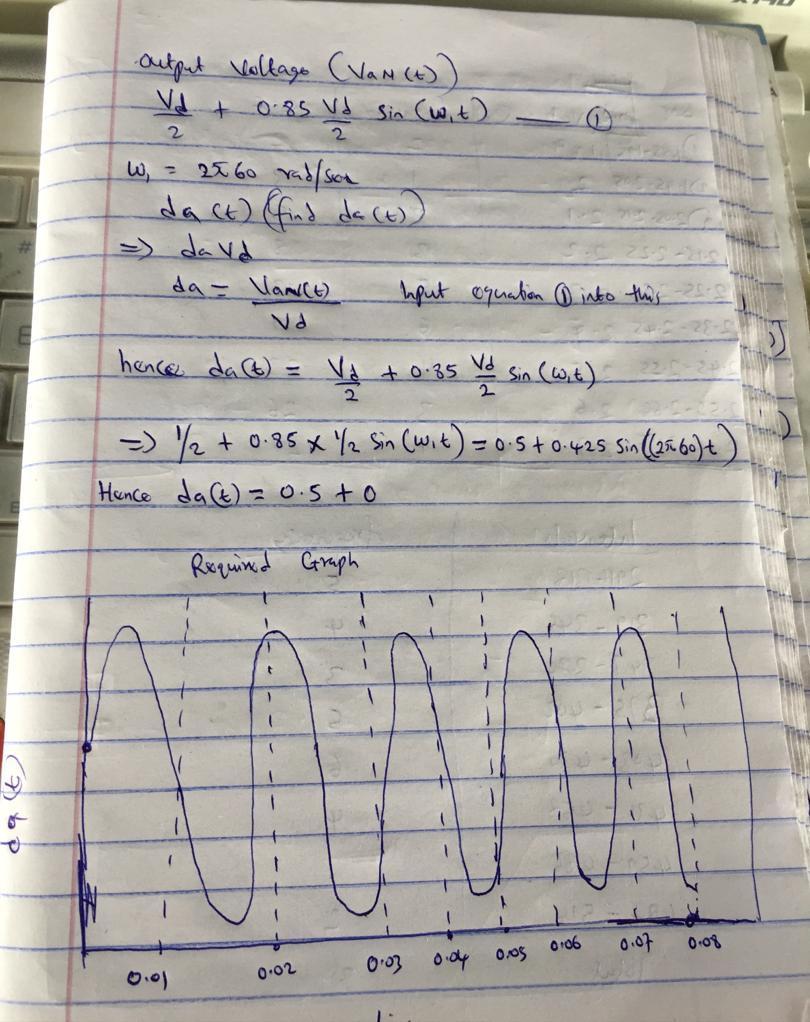 output Voltage (VaN(t))
Vd/2 + 0.85 Vd/2 sin (ω,t) —— ①
ω, = 2π60 rad/sec
da (t) (find da(t))
=> da Vd
da = VaN(t)/Vd Input equation ① into this
hence da(t) = Vd/2 + 0.85 Vd/2 sin(ω,t)
=> 1/2 + 0.85 x 1/2 sin(ω,t) = 0.5 + 0.425 sin((2π60)t)
Hence da(t) = 0.5 + 0
Required Graph
da(t)
0.01 0.02 0.03 0.04 0.05 0.06 0.07 0.08